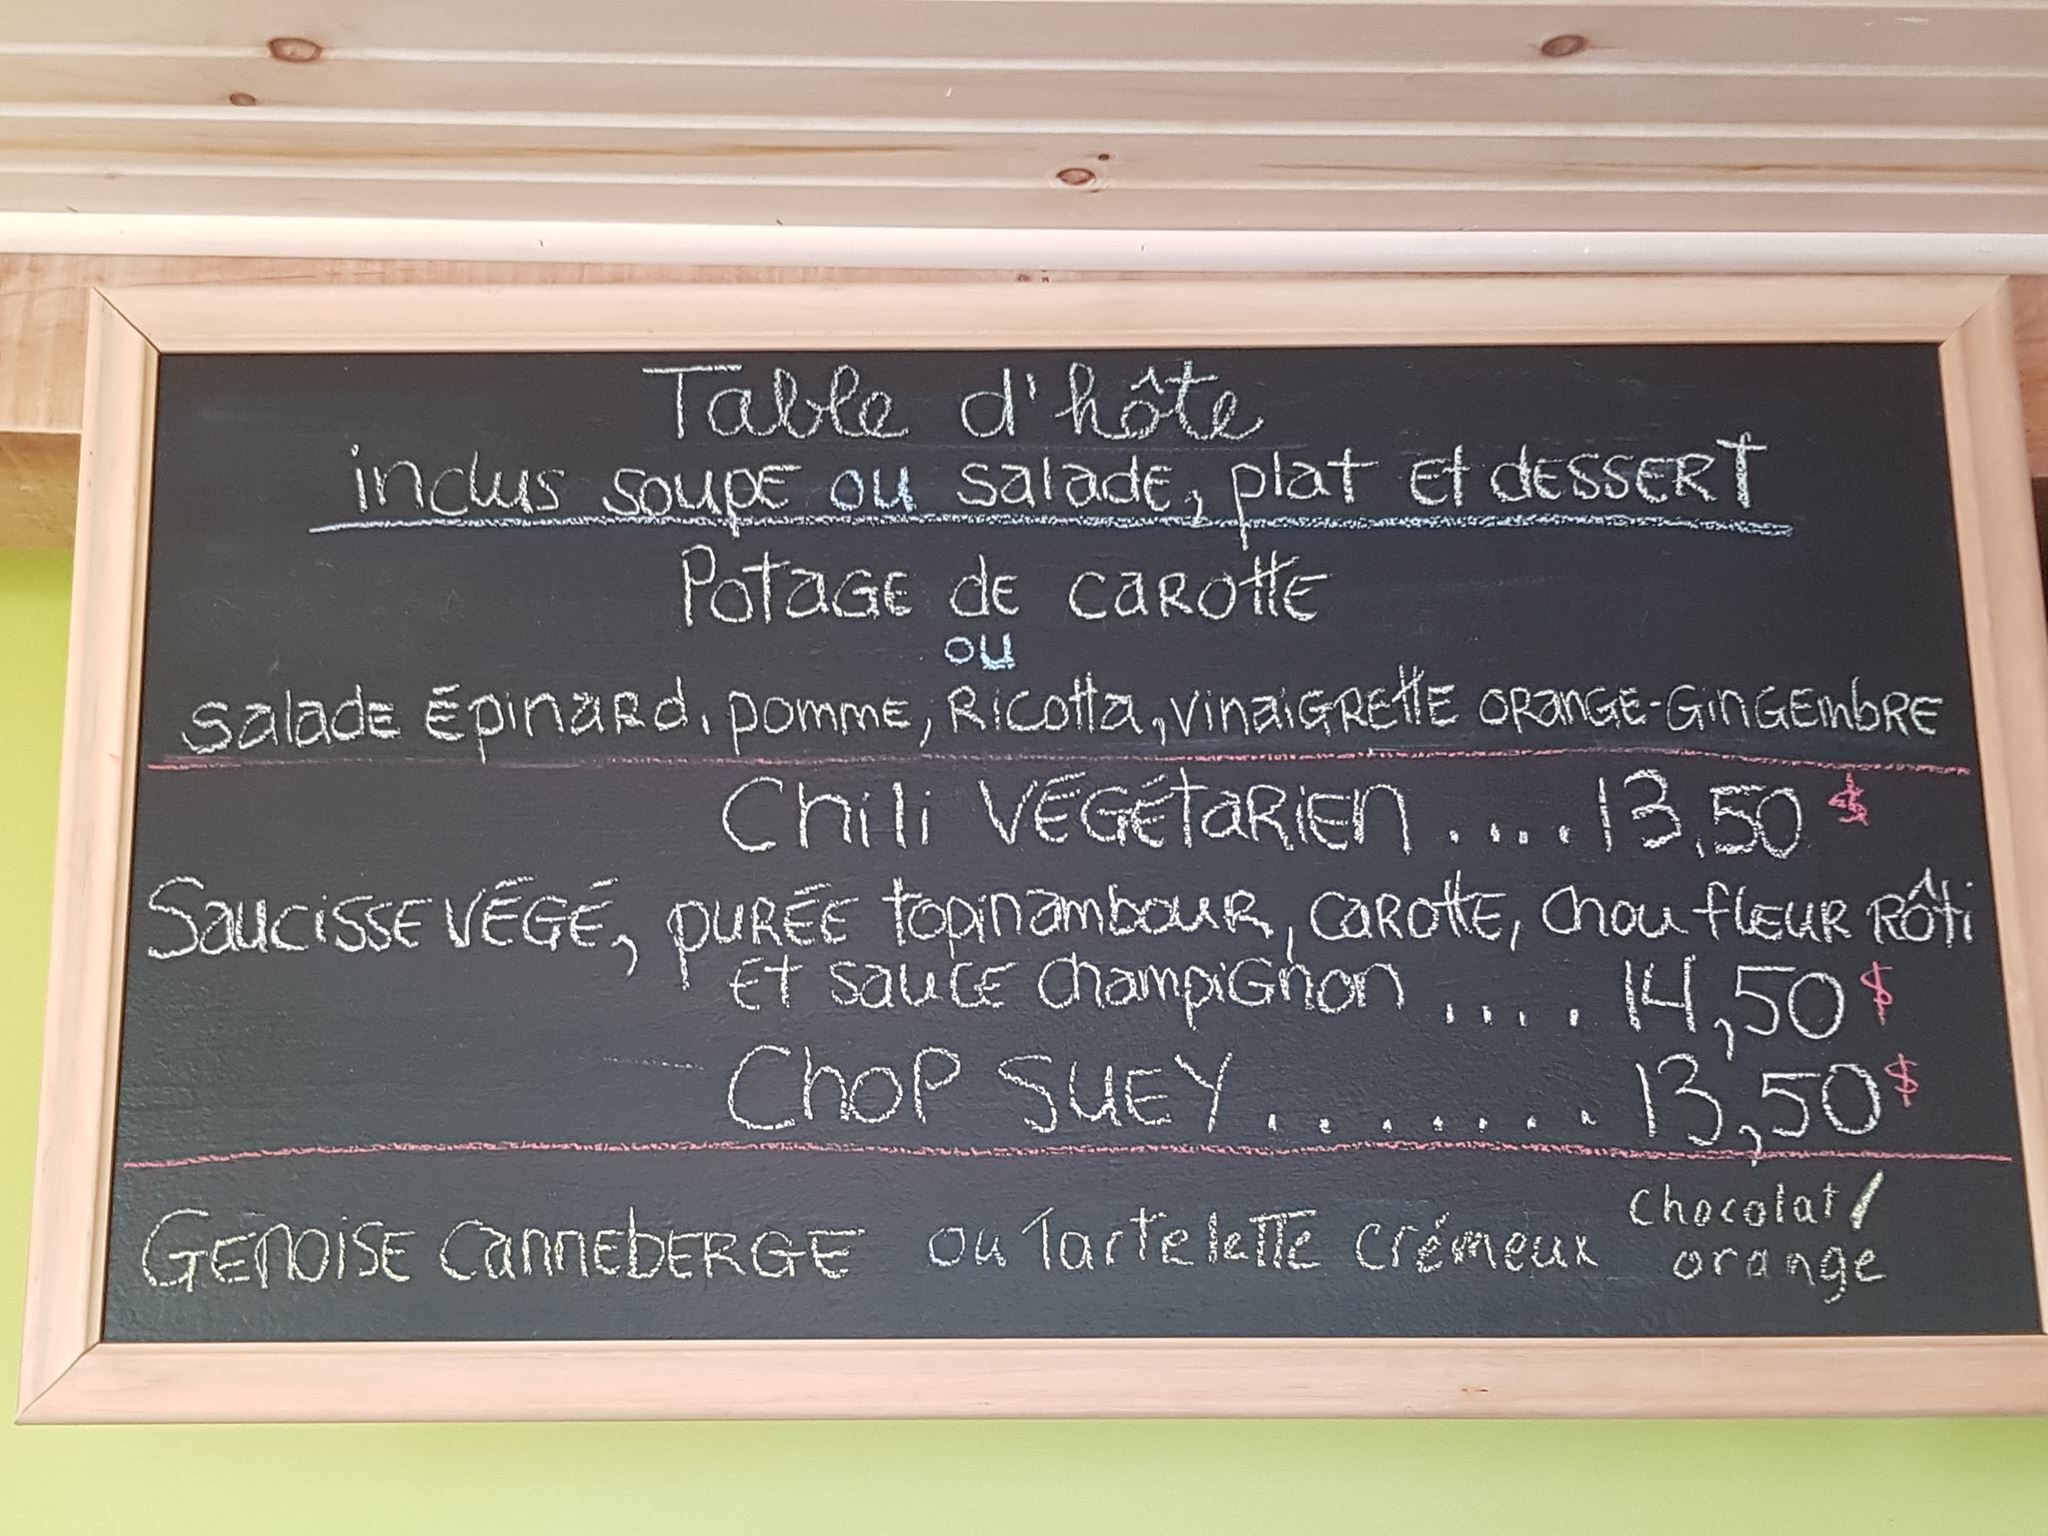 Table d'hôte
inclus soupe ou salade, plat et dessert
Potage de carotte
ou
salade épinard, pomme, ricotta, vinaigrette orange-gingembre
Chili végétarien .... 13,50 $
Saucisse végé, purée topinambour, carotte, chou fleur rôti
et sauce champignon .... 14,50 $
Chop Suey ....... 13,50 $
Genoise canneberge ou Tartelette crémeux chocolat/
orange